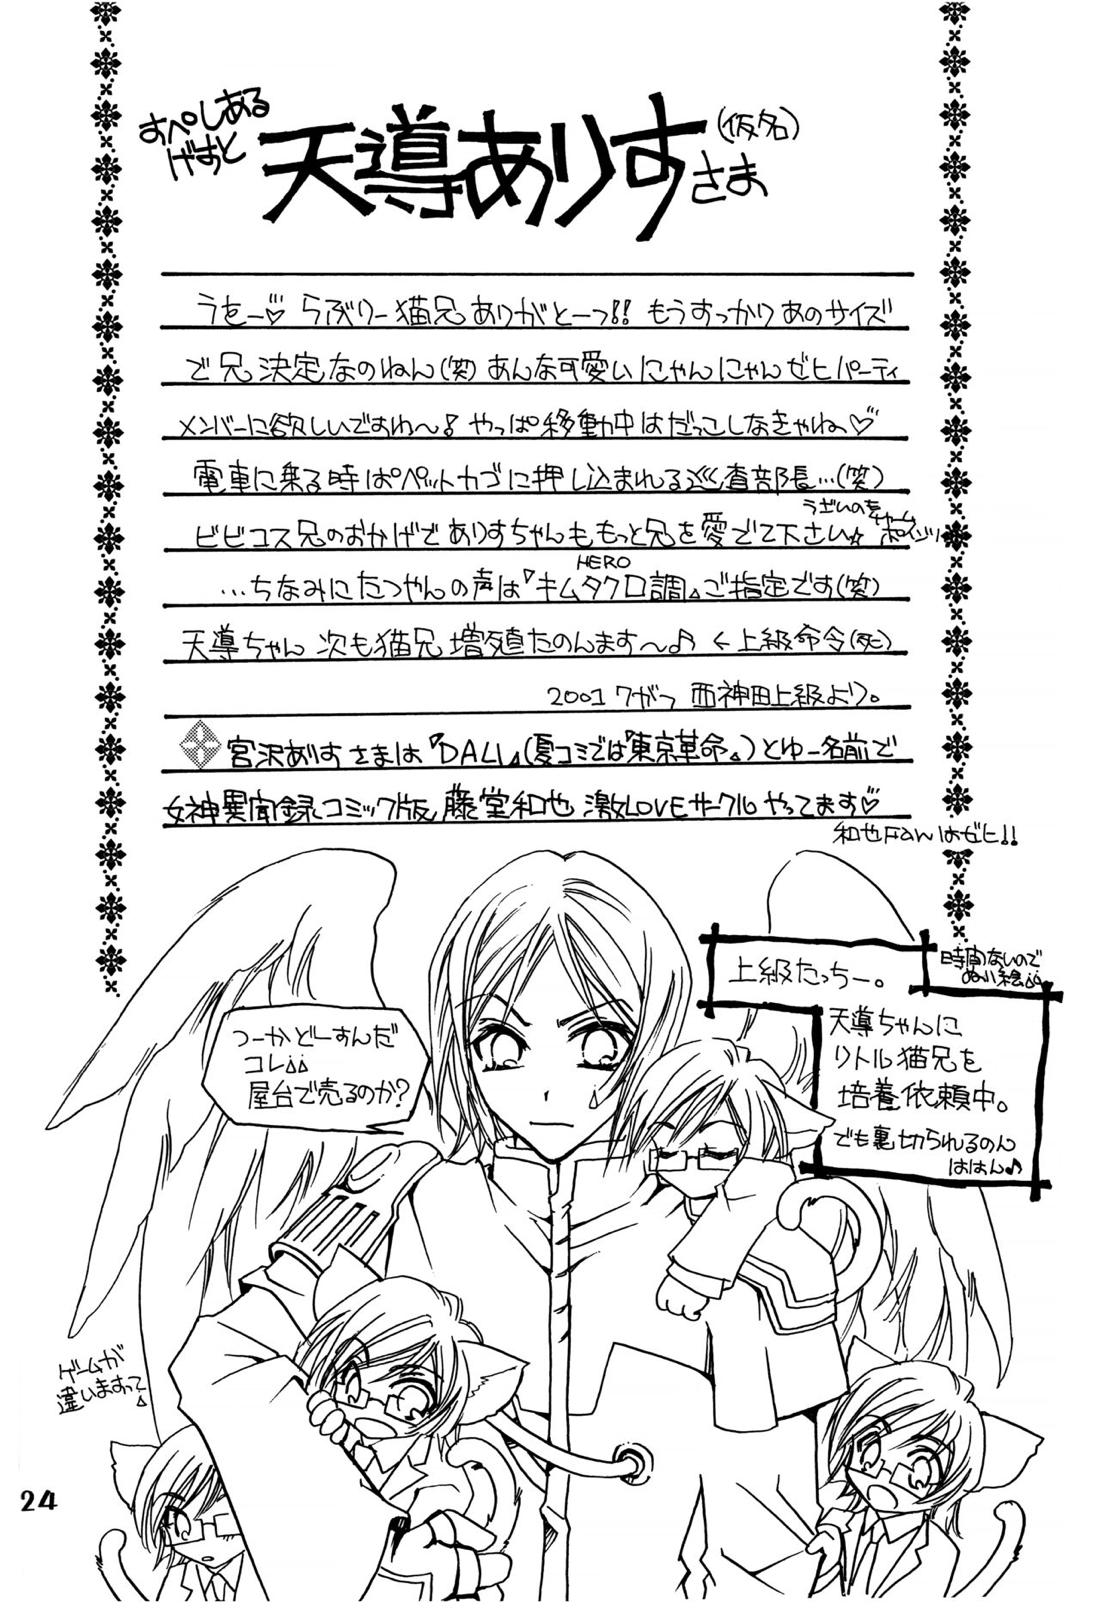 すぺしある
げすと
天導ありす(仮名)さま
うをー♡ らぶりー猫兄ありがとーっ!! もうすっかりあのサイズ
で兄決定なのねん(笑) あんな可愛いにゃんにゃんぜヒパーティ
メンバーに欲しいですわ〜♪ やっぱ移動中はだっこしなきゃね♡
電車に乗る時はペットカゴに押し込まれる巡査部長…(笑)
ビビコス兄のおかげでありすちゃんももっと兄を愛でて下さい☆
うざいのも
チャーム
ポインツ
…ちなみにたつやんの声は『キムタクロ調』ご指定です(笑)
HERO
天導ちゃん 次も猫兄増殖たのんます〜♪ ←上級命令(死)
2001 7がつ 西神田上級より。
宮沢ありすさまは『DALI』(夏コミでは『東京革命』)とゆー名前で
女神異聞録コミック版 藤堂和也 激LOVEサークルやってます♡
和也Fanはぜヒ!!
上級たっちー。
時間ないので
ぬい絵
天導ちゃんに
リトル猫兄を
培養依頼中。
でも裏切られるのん
ははん♪
つーかどーすんだ
コレ
屋台で売るのか?
ゲームが
違いますって
24